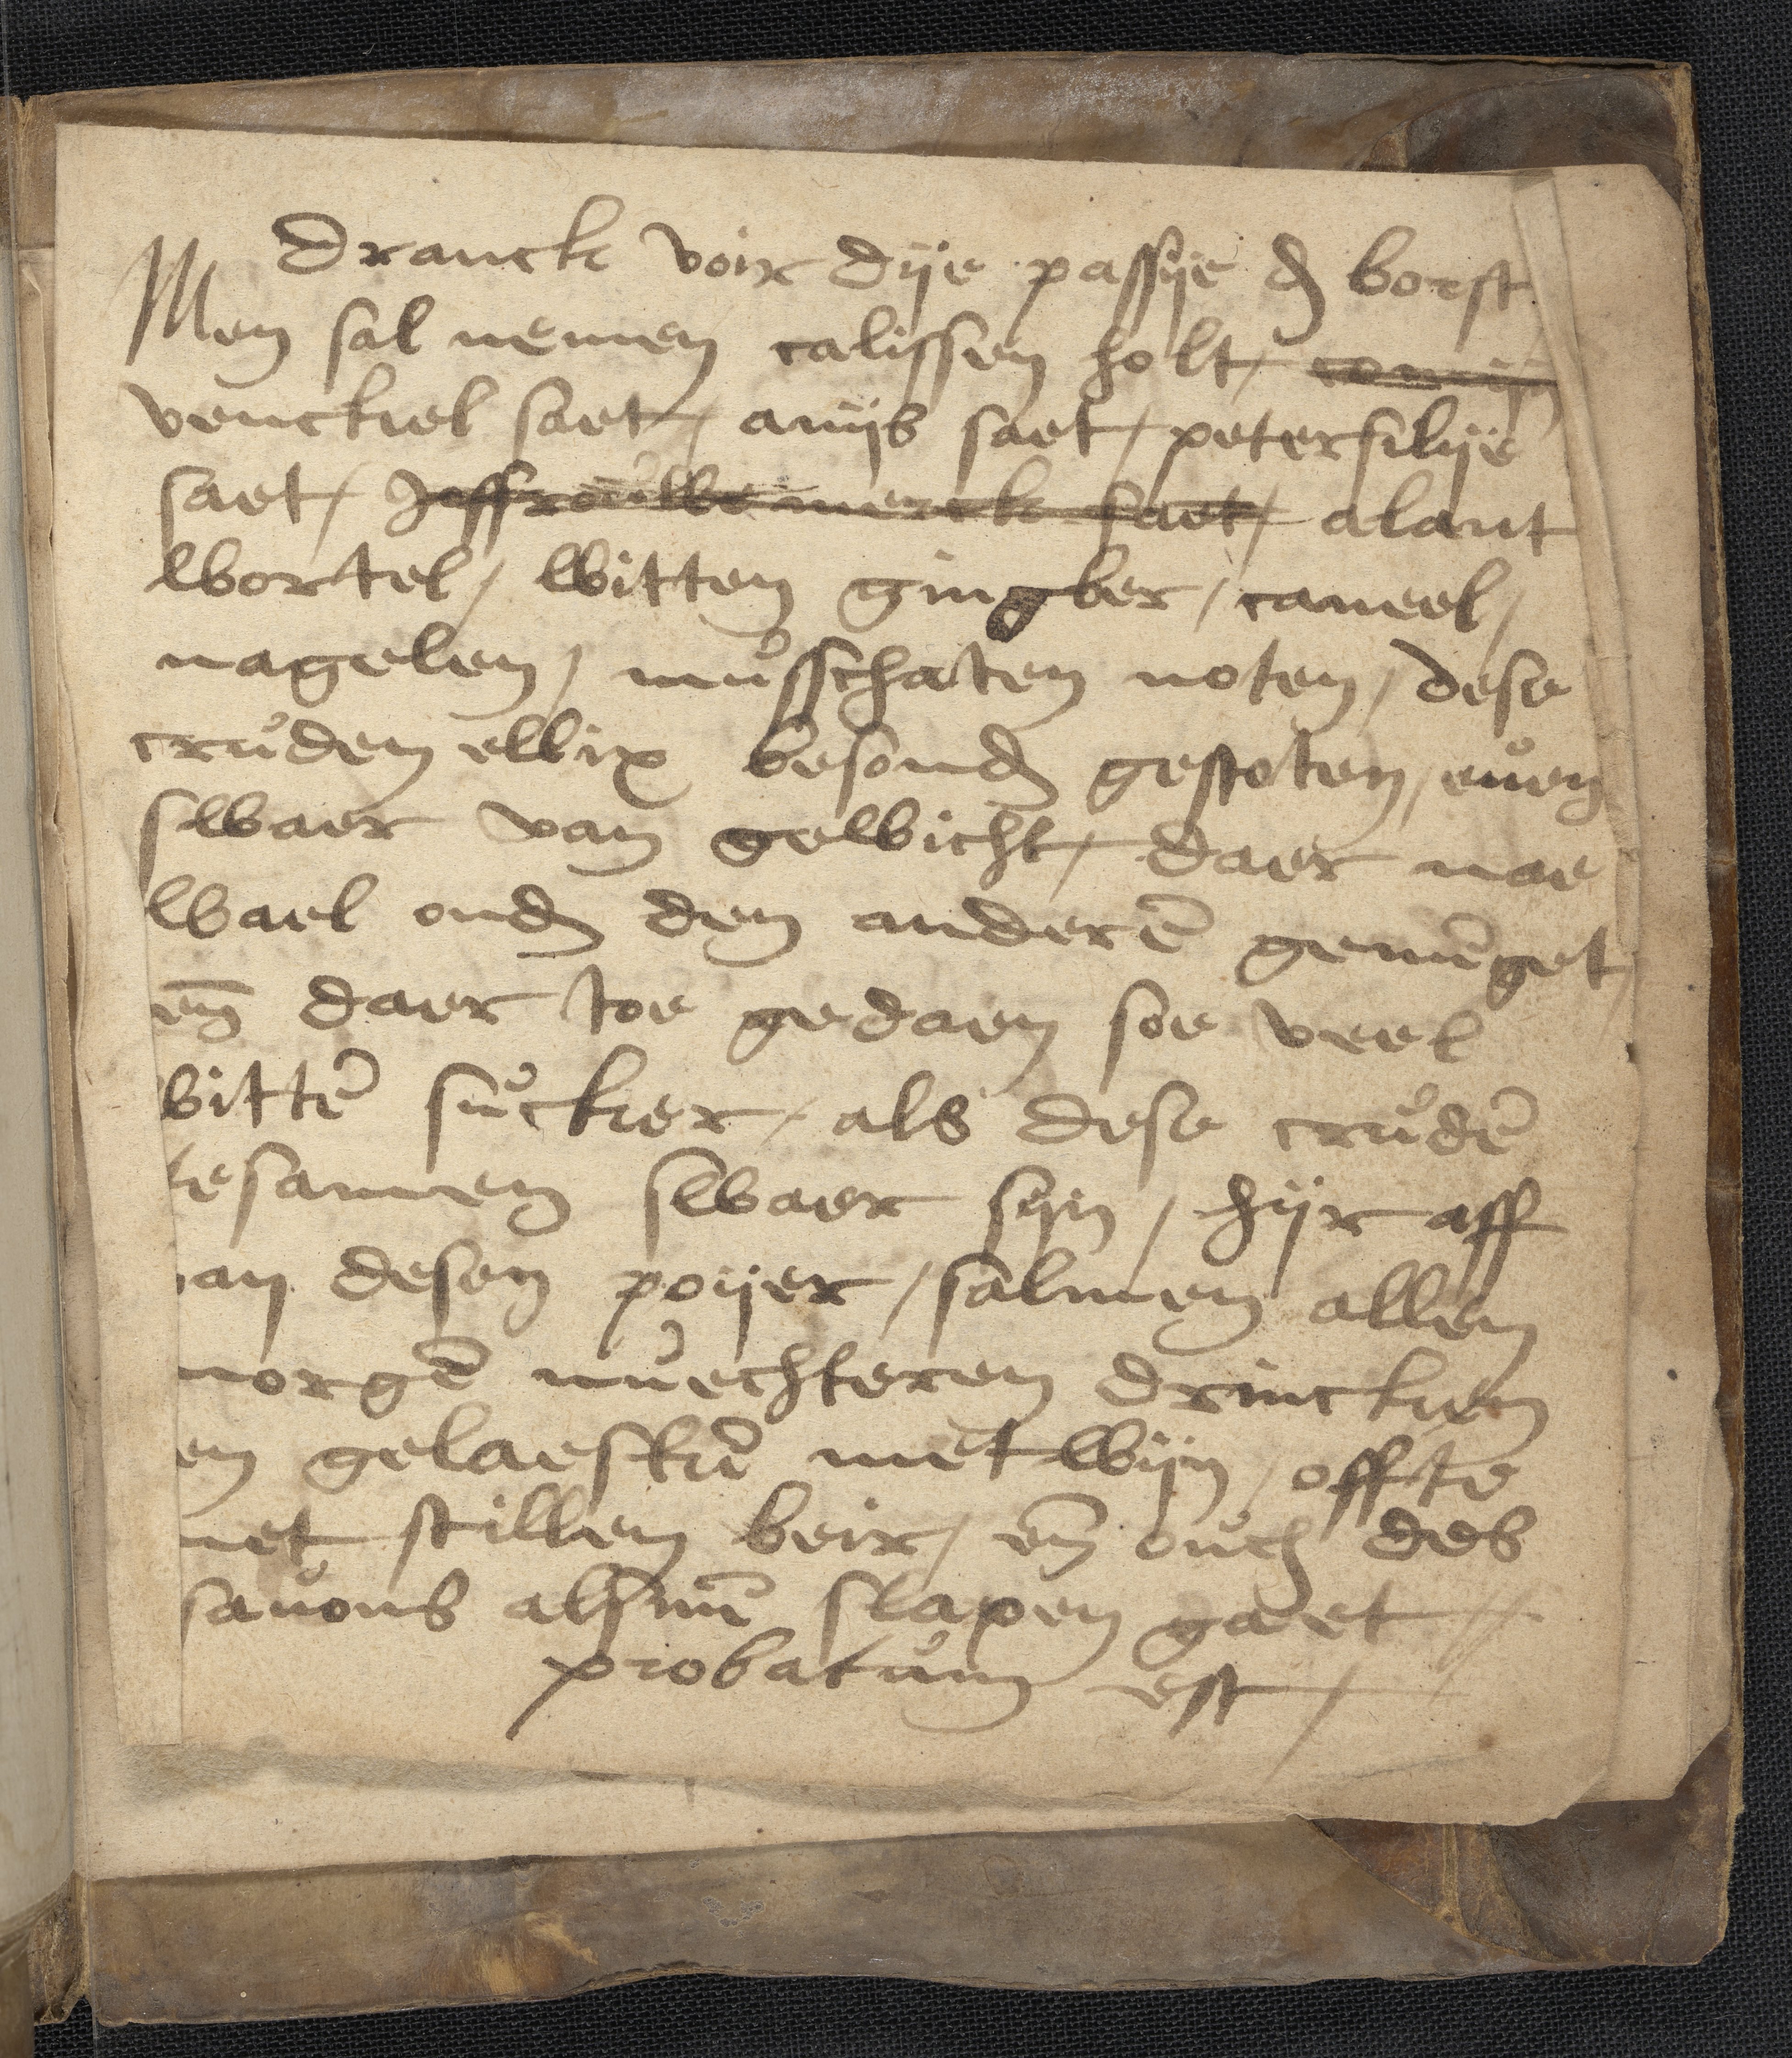 Dranck voir dije passije d borst
Men sal nemen calissen holt / comijn
venckel saet / anijs saet / petersilije
saet / Joffrouwe merck saet / alant
wortel / witten gingber / caneel /
nagelen / musschaten noten / dese
cruden ellix besond gestoten / euen
swaer van gewicht / daer nae
wael ond den anderē gemēget
en̄ daer toe gedaen soe veel
wittē sucker / als dese crudē
tesamen swaer sijn / hijr aff
van desen poijer / salmen allen
morgē nuechteren drincken
en gelaeskē met wijn / offte
met stillen beir / en̄ ouch des
sauons alsmē slapen gaet //
probatum est /